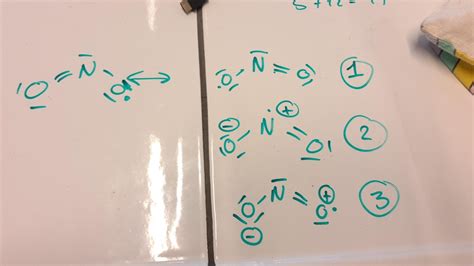 5+12=17
O=N-O ↔
O-N=O 1
⊖ ⊕
O-N=O 2
⊕
O-N=O 3
⊖